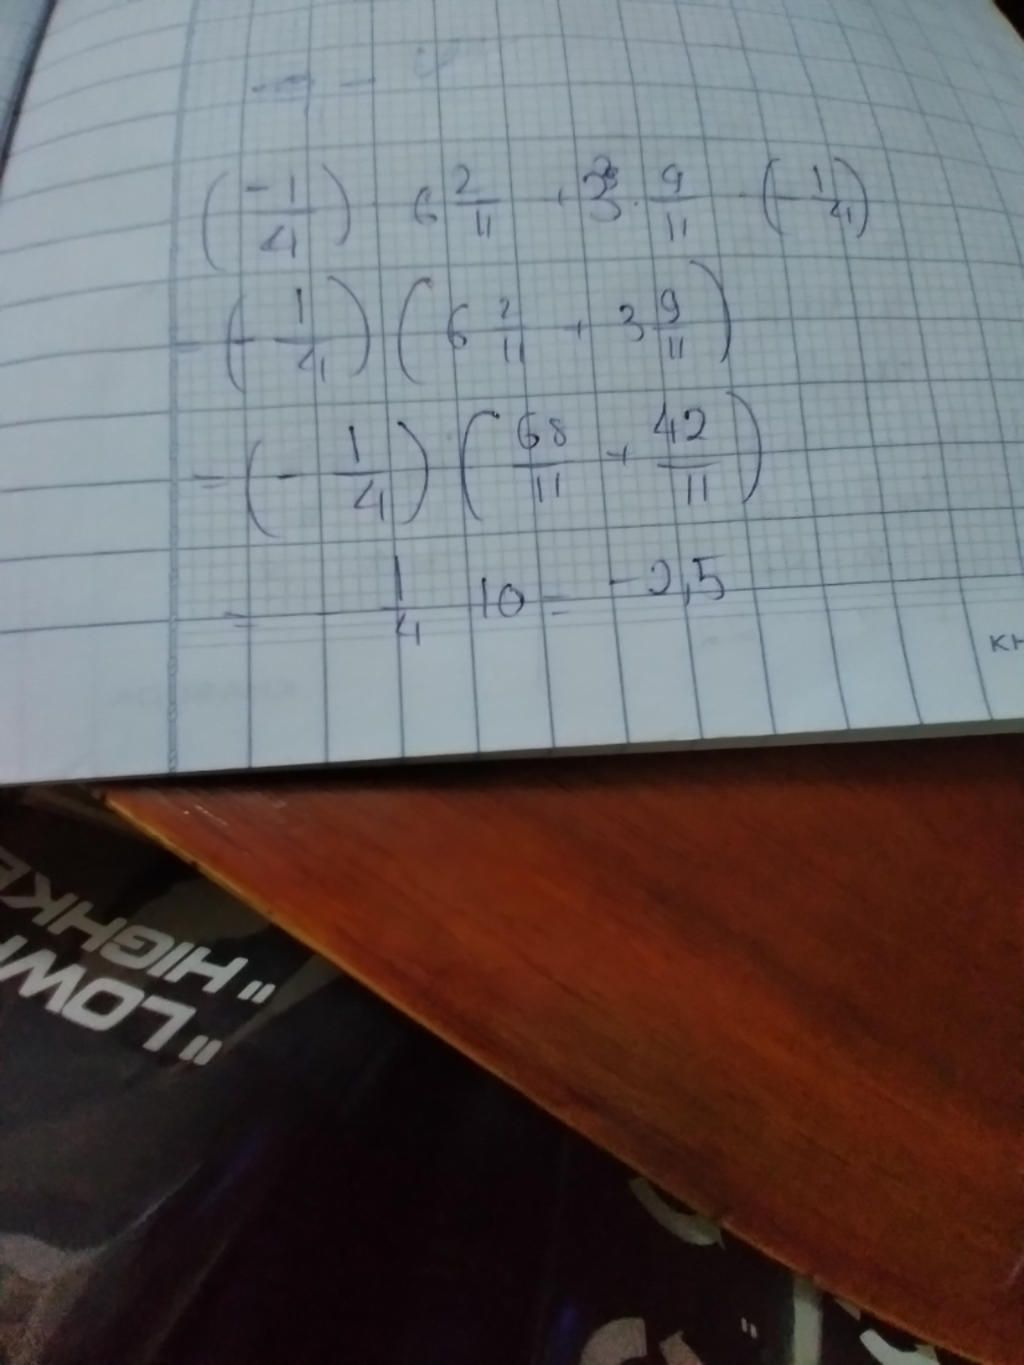 (-1/4) 6 2/11 + 3 · 9/11 (-1/4)
= (-1/4) (6 2/11 + 3 9/11)
= (-1/4) (68/11 + 42/11)
= -1/4 10 = -2,5
KH
"LOW
"HIGHKE